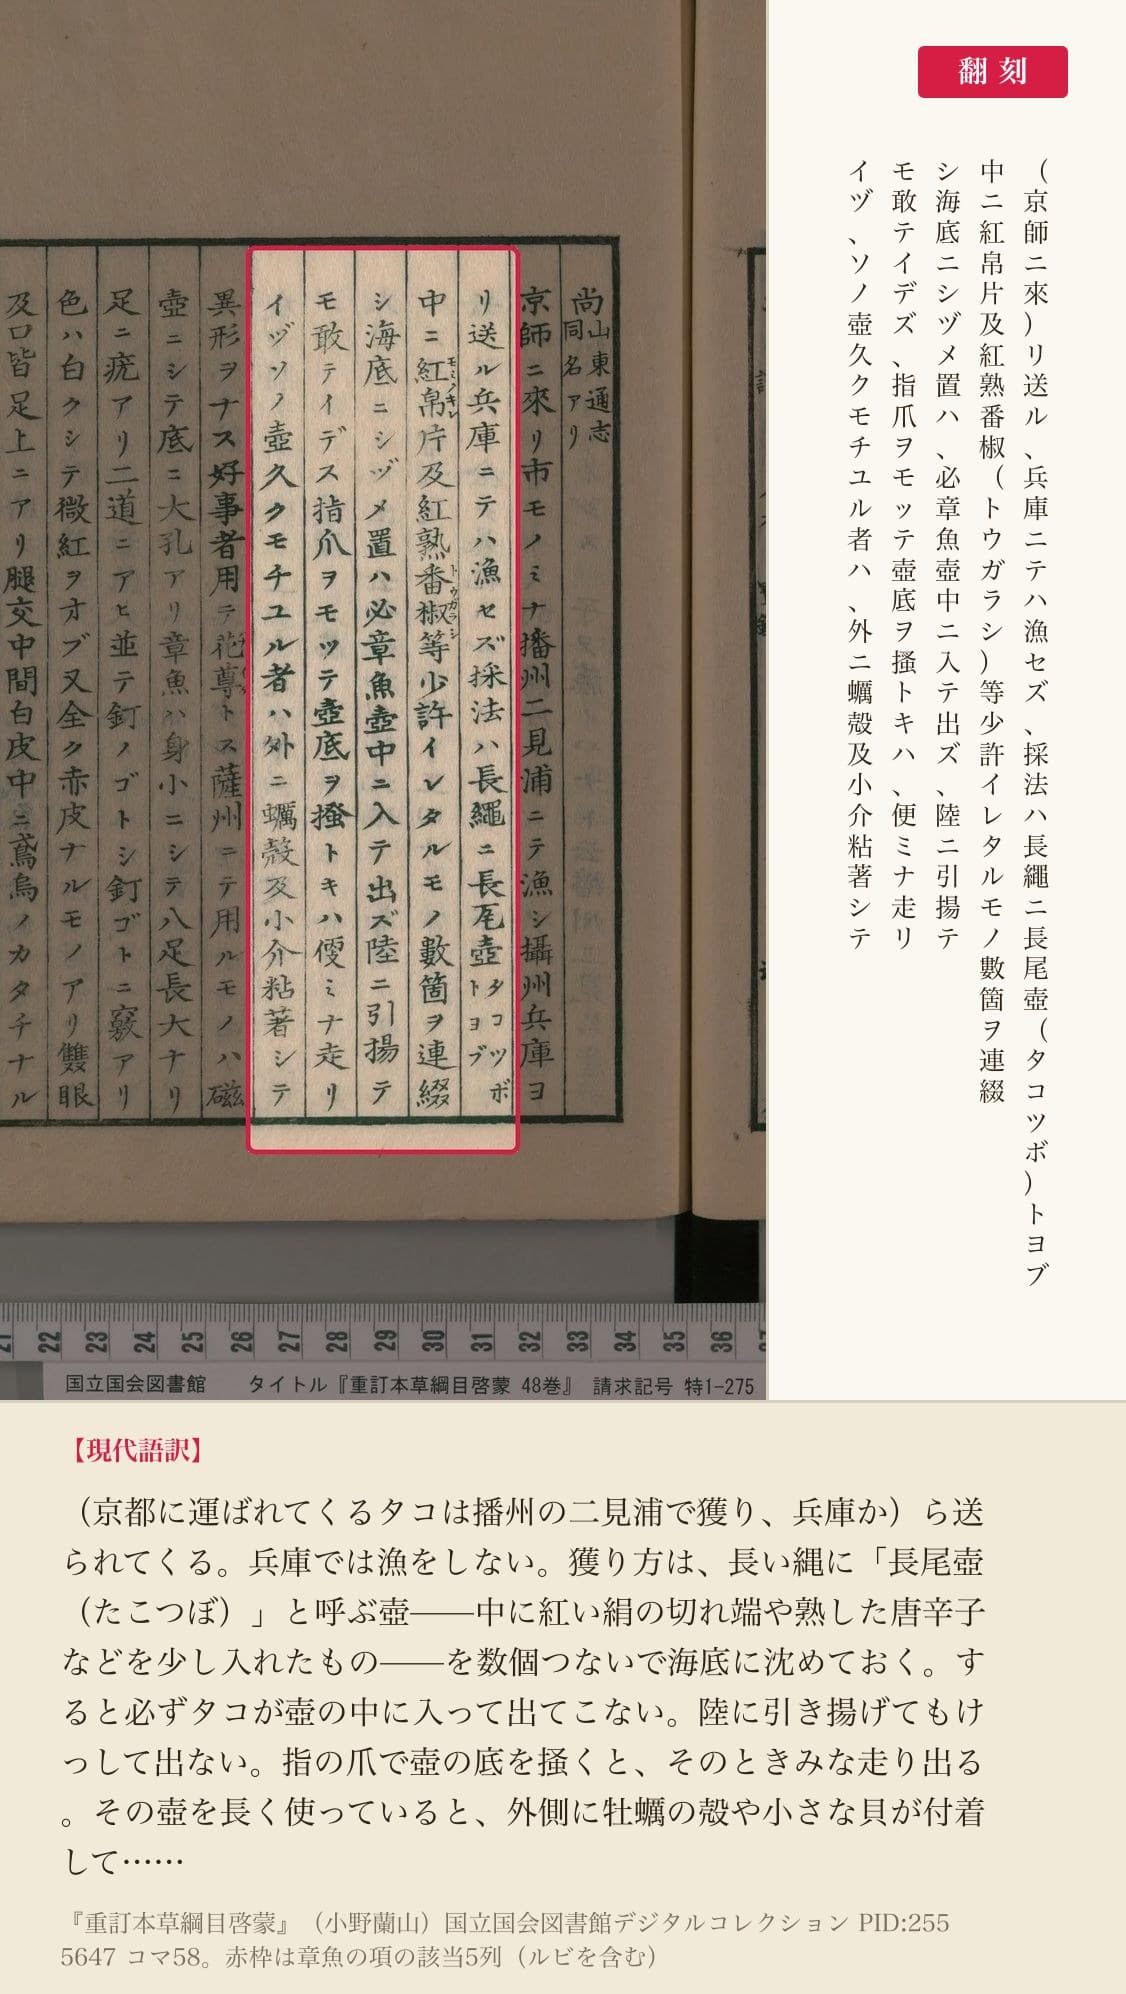 尚山東通志同名アリ
京師ニ來リ市モノミナ播州二見浦ニテ漁シ攝州兵庫ヨ
リ送ル兵庫ニテハ漁セズ採法ハ長繩ニ長瓱壺タコツボトヨブ
中ニ紅帛片モミノキレ及紅熟番椒トウガラシ等少許イレタルモノ數箇ヲ連綴
シ海底ニシヅメ置ハ必章魚壺中ニ入テ出ズ陸ニ引揚テ
モ敢テイデス指爪ヲモッテ壺底ヲ搔トキハ便ミナ走リ
イヅソノ壺久クモチユル者ハ外ニ蠣殼及小介粘著シテ
異形ヲナス好事者用テ花尊トス薩州ニテ用ルモノハ磁
壺ニシテ底ニ大孔アリ章魚ハ身小ニシテ八足長大ナリ
足ニ疣アリ二道ニアヒ並テ釘ノゴトシ釘ゴトニ竅アリ
色ハ白クシテ微紅ヲオブ又全ク赤皮ナルモノアリ雙眼
及口皆足上ニアリ腿交中間白皮中ニ鳶烏ノカタチナル
22 23 24 25 26 27 28 29 30 31 32 33 34 35 36
国立国会図書館 タイトル『重訂本草綱目啓蒙 48巻』 請求記号 特1-275
翻刻
（京師ニ來）リ送ル、兵庫ニテハ漁セズ、採法ハ長繩ニ長尾壺（タコツボ）トヨブ
中ニ紅帛片及紅熟番椒（トウガラシ）等少許イレタルモノ數箇ヲ連綴
シ海底ニシヅメ置ハ、必章魚壺中ニ入テ出ズ、陸ニ引揚テ
モ敢テイデズ、指爪ヲモッテ壺底ヲ掻トキハ、便ミナ走リ
イヅ、ソノ壺久クモチユル者ハ、外ニ蠣殻及小介粘著シテ
【現代語訳】
（京都に運ばれてくるタコは播州の二見浦で獲り、兵庫か）ら送
られてくる。兵庫では漁をしない。獲り方は、長い縄に「長尾壺
（たこつぼ）」と呼ぶ壺――中に紅い絹の切れ端や熟した唐辛子
などを少し入れたもの――を数個つないで海底に沈めておく。す
ると必ずタコが壺の中に入って出てこない。陸に引き揚げてもけ
っして出ない。指の爪で壺の底を掻くと、そのときみな走り出る
。その壺を長く使っていると、外側に牡蠣の殻や小さな貝が付着
して……
『重訂本草綱目啓蒙』（小野蘭山）国立国会図書館デジタルコレクション PID:255
5647 コマ58。赤枠は章魚の項の該当5列（ルビを含む）